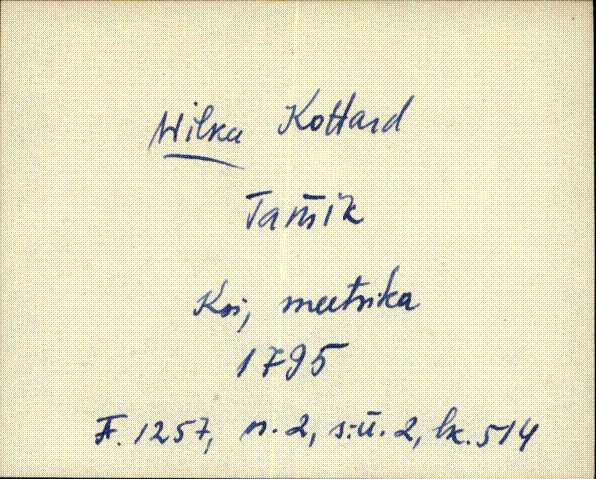 Wilka Kottard
Tam̄ik
Koi, meetrika
1795
F. 1257, n. 2, s.ü. 2, lk. 514